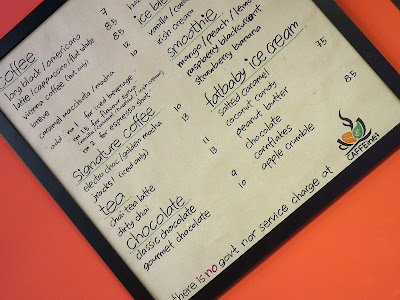 coffee
long black / americano 7
latte / cappuccino / flat white 8.5
vienna coffee (hot only) 8.5
breve 12
caramel macchiato / mocha 10
add rm 1 for iced beverage
rm 2 for espresso shot
signature coffee
electro choc / golden mocha 10
jracks (iced only) 13
tea
chai tea latte 11
dirty chai 13
chocolate
classic chocolate 9
gourmet chocolate 10
smoothie
mango / peach / lemon
raspberry blackcurrant
strawberry banana
fatbaby ice cream
salted caramel 7.5
coconut candy
peanut butter 8.5
chocolate
cornflakes
apple crumble
CAFFEINEE
there is no govt nor service charge at